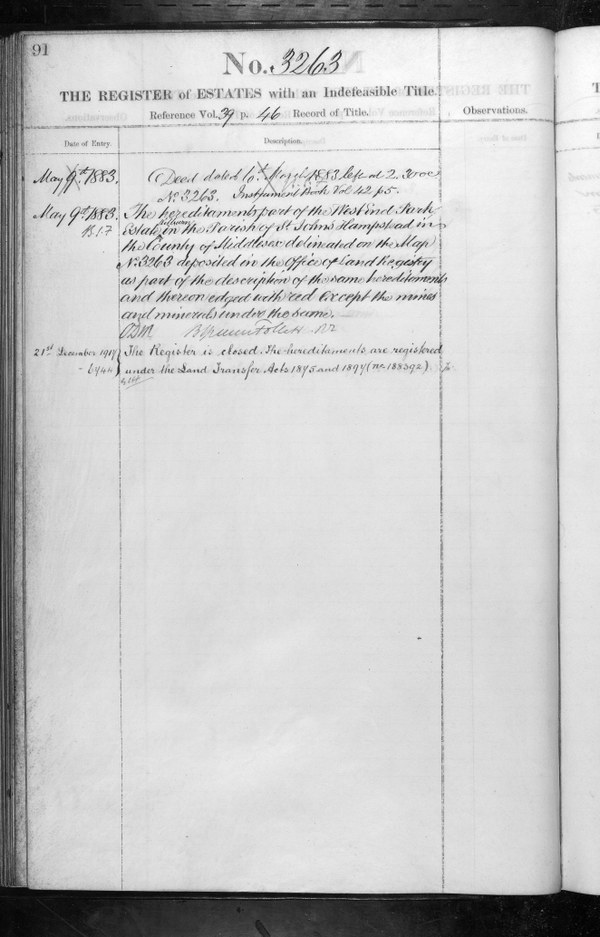 91
No. 3263
THE REGISTER of ESTATES with an Indefeasible Title.
Reference Vol. 39 p. 46 Record of Title.
Observations.
Date of Entry.
Description.
May 9th 1883.
Deed dated 6th May 1883 left at 2.30 o'c
No. 3263. Instrument Book Vol 42 p 5.
May 9th 1883
The hereditaments part of the West End Park
18.17
Estate in the Parish of St Johns Hampstead in
the County of Middlesex delineated on the Map
No. 3263 deposited in the Office of Land Registry
as part of the description of the same hereditaments
and thereon edged with red except the mines
and minerals under the same.
21st December 1917
The Register is closed. The hereditaments are registered
under the Land Transfer Acts 1875 and 1897 (no 188392).